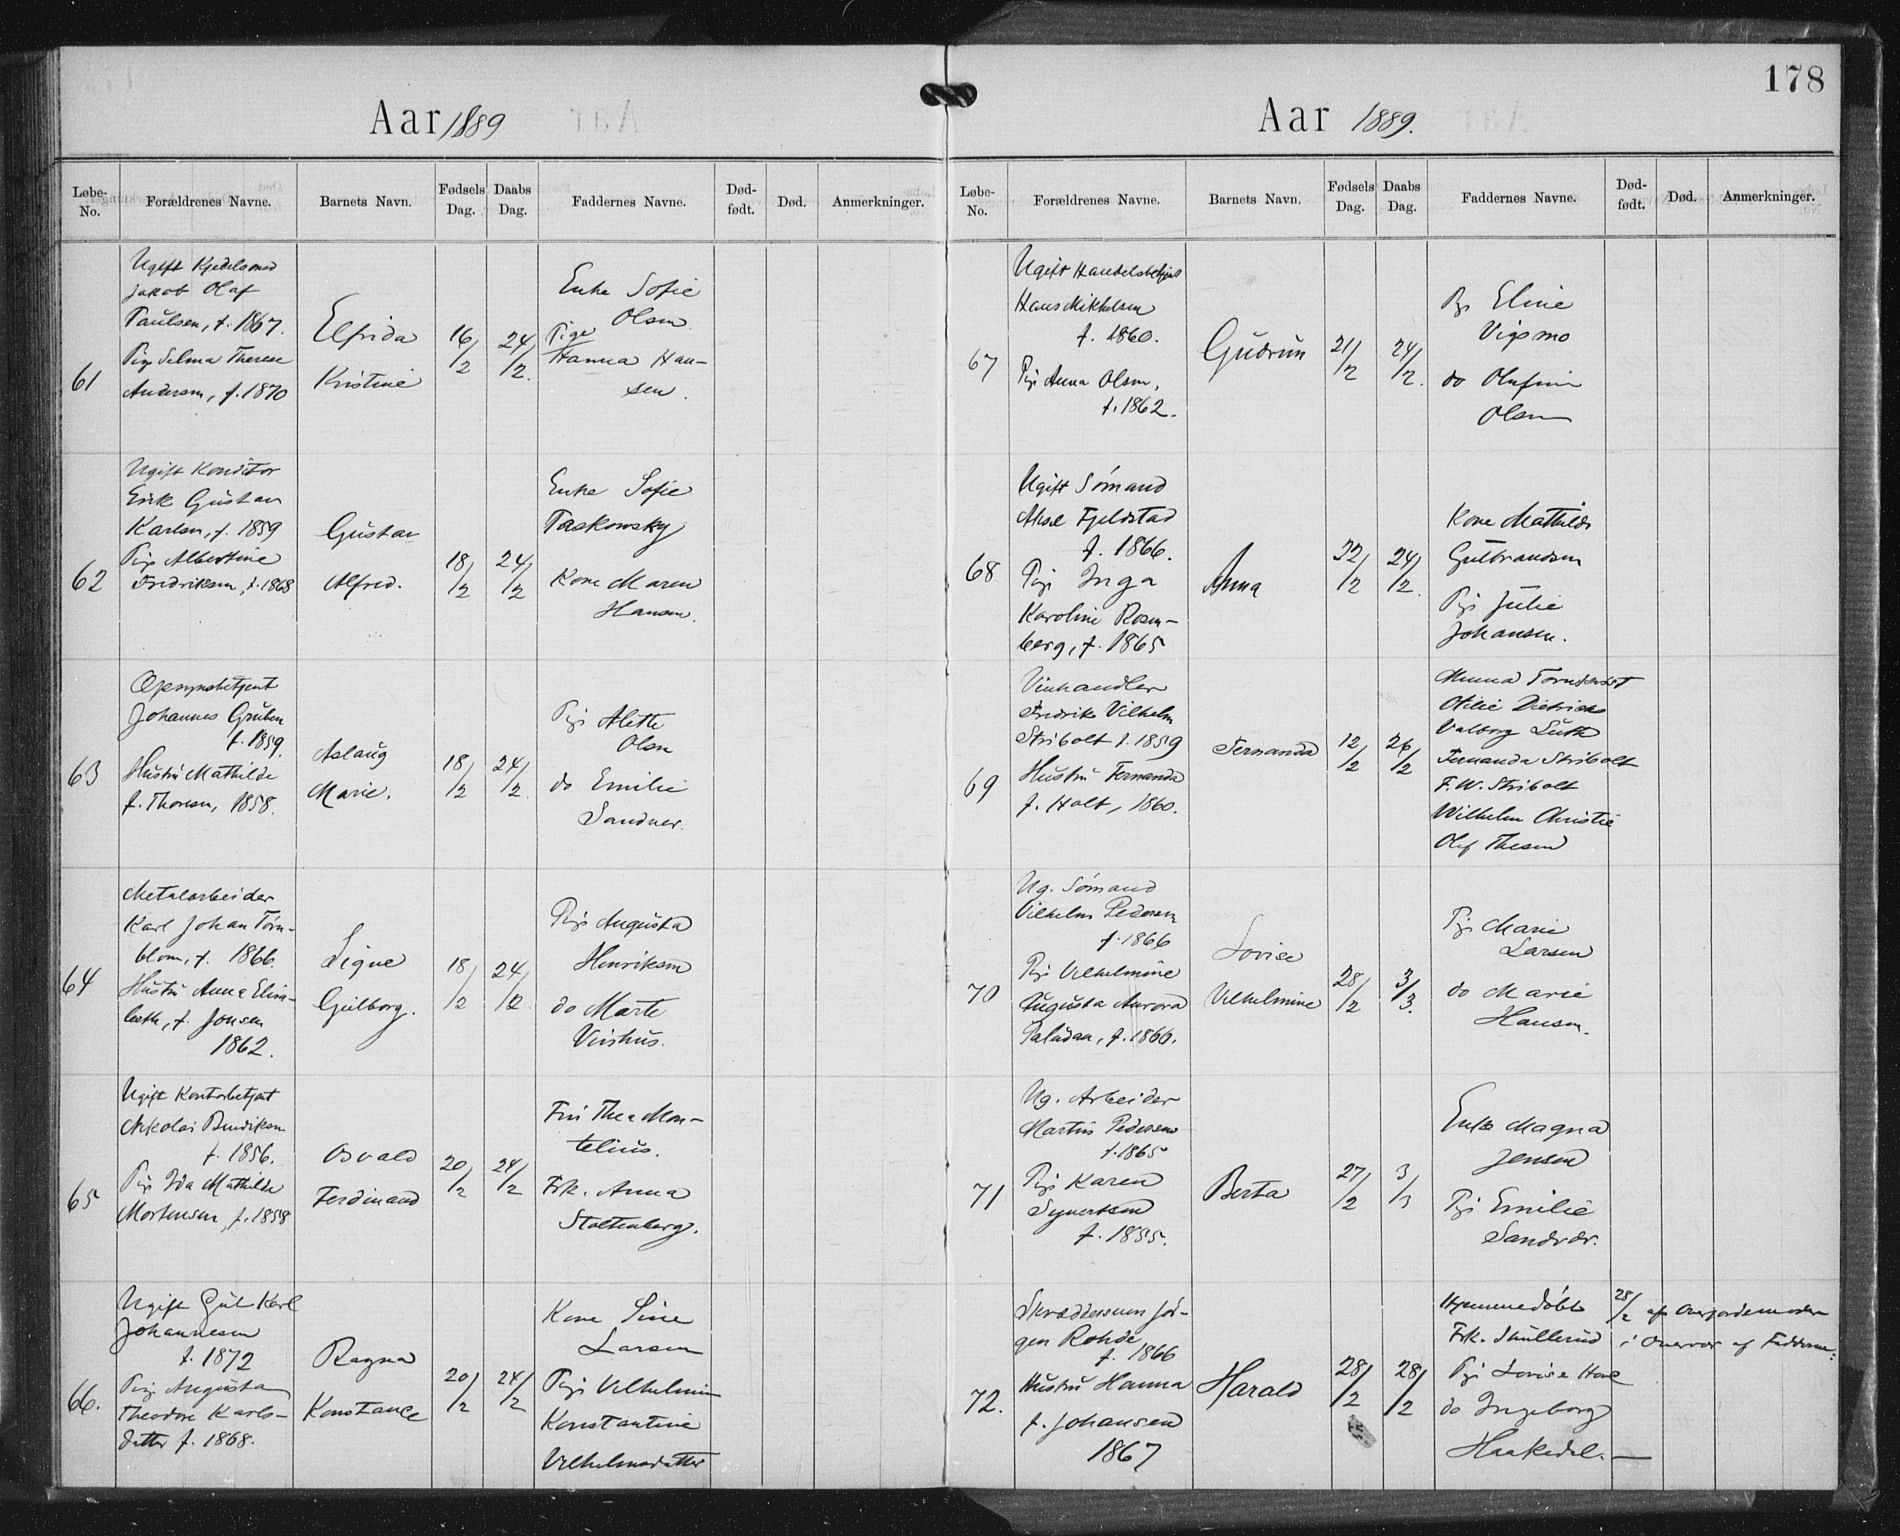 178
Aar 1889
Løbe-No. Forældrenes Navne. Barnets Navn. Fødsels Dag. Daabs Dag. Faddernes Navne. Død-født. Død. Anmerkninger.
61
Ugift Kjedelsmed
Jakob Olaf
Paulsen, f. 1867.
Pige Selma Therese
Andersen, f. 1870
Elfrida
Kristine
16/2
24/2.
Enke Sofie
Olsen.
Pige
Hanna Han-
sen.
62
Ugift Konditor
Erik Gustav
Karlsen, f. 1859
Pige Albertine
Fredriksen, f. 1868
Gustav
Alfred.
18/2
24/2
Enke Sofie
Taskowsky
Kone Maren
Hansen.
63
Opsynsbetjent
Johannes Gruben
f. 1859.
Hustru Mathilde
f. Thoresen, 1858.
Aslaug
Marie.
18/2
24/2.
Pige Alette
Olsen
do Emilie
Sandver.
64
Metalarbeider
Karl Johan Törn-
blom, f. 1866.
Hustru Anna Elisa-
beth, f. Jonsen
1862.
Signe
Gulborg.
18/2
24/2.
Pige Augusta
Henriksen
do Marte
Virshus.
65
Ugift Kontorbetjent
Nikolai Bendiksen
f. 1856.
Pige Ida Mathilde
Mortensen, f. 1858
Osvald
Ferdinand
20/2
24/2
Fru Thea Mon-
telius.
Frk. Anna
Stoltenberg.
66.
Ugift Karl
Johannesen
f. 1872
Pige Augusta
Theodore Karls-
datter f. 1868.
Ragna
Konstance
20/2
24/2
Kone Sine
Larsen
Pige Vilhelmine
Konstantine
Vilhelmsdatter
Aar 1889.
Løbe-No. Forældrenes Navne. Barnets Navn. Fødsels Dag. Daabs Dag. Faddernes Navne. Død-født. Død. Anmerkninger.
67
Ugift Handelsbetjent
Hans Mikkelsen
f. 1860.
Pige Anna Olsen,
f. 1862.
Gudrun
21/2
24/2.
Pige Eline
Vigsmo
do Olufine
Olsen
68
Ugift Sømand
Aksel Fjeldstad
f. 1866.
Pige Inga
Karoline Rosen-
berg, f. 1865
Anna
22/2
24/2.
Kone Mathilde
Gulbrandsen
Pige Julie
Johansen.
69
Vinhandler
Fredrik Vilhelm
Stribolt f. 1859
Hustru Fernanda
f. Holt, 1860.
Fernanda
12/2
26/2
Otilie Dietrichs
Valborg
Fernanda Stribolt
F. W. Stribolt
Wilhelm Christie
Olef Thesen
70
Ug. Sømand
Vilhelm Pedersen
f. 1866
Pige Vilhelmine
Augusta Aurora
Paludan, f. 1866.
Lovise
Vilhelmine
28/2
3/3.
Pige Marie
Larsen
do Marie
Hansen.
71
Ug. Arbeider
Martin Pedersen
f. 1865
Pige Karen
Synertsen
f. 1855.
Berta
27/2
3/3
Enke Magna
Jensen
Pige Emilie
Sandver.
72.
Skræddersvend Jör-
gen Rohde
f. 1866
Hustru Hanna
f. Johansen
1867
Harald
28/2
28/2
Hjemmedøbt 28/2 af Overjordemoder
Frk. Skullerud i Overvær af Fadderne:
Pige Lovise
do Ingeborg
Haakedal.